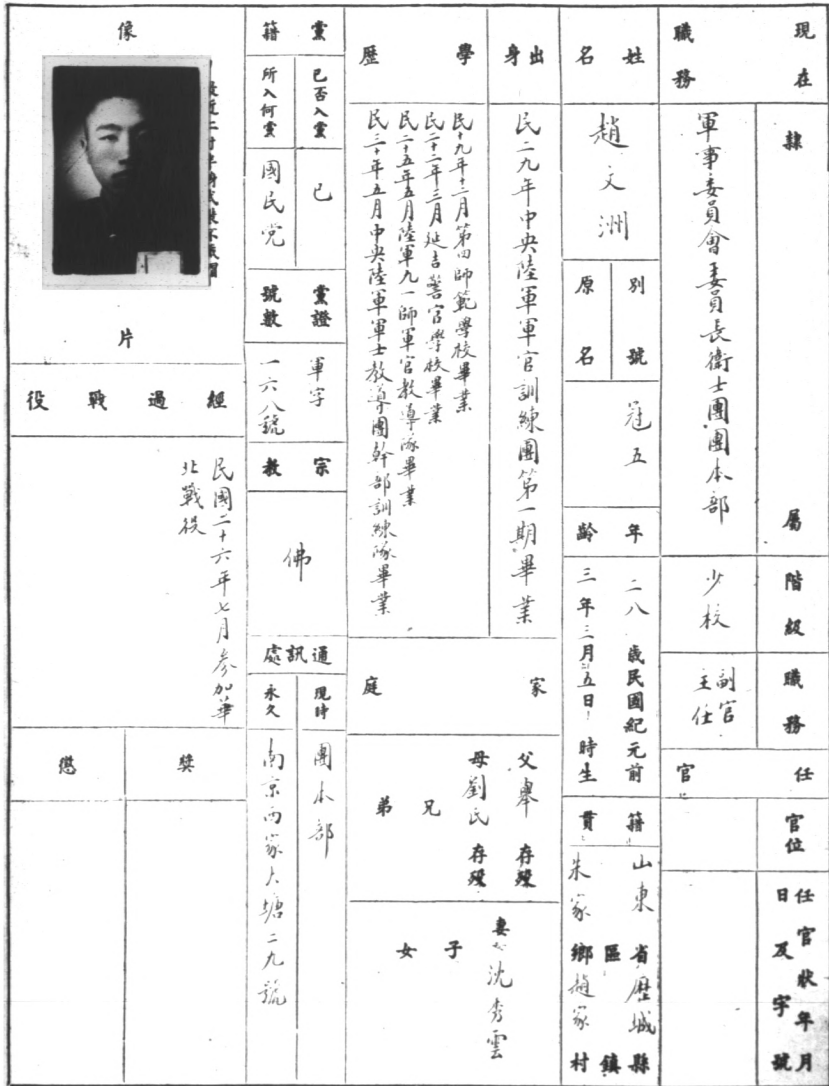 現在職務
隸屬
軍事委員會委員長衛士團團本部
階級
少校
職務
副官主任
任官
官位
任官狀年月日及字號
姓名
趙文洲
別號
原名
冠五
年齡
二八歲民國紀元前
三年三月五日 時生
籍貫
山東省歷城縣
區鎮
朱家鄉趙家村
出身
民二九年中央陸軍軍官訓練團第一期畢業
學歷
民十九年十二月第四師範學校畢業
民二十二年三月延吉警官學校畢業
民二十五年五月陸軍九一師軍官教導隊畢業
民三十年五月中央陸軍軍士教導團幹部訓練隊畢業
家庭
父舉 存歿
母劉氏 存歿
兄弟
妻 沈秀雲
子女
黨籍
已否入黨
已
所入何黨
國民党
黨證號數
軍字
一六八號
宗教
佛
通訊處
現時
團本部
永久
南京西家大塘二九號
像片
經過戰役
民國二十六年七月參加華
北戰役
獎
懲